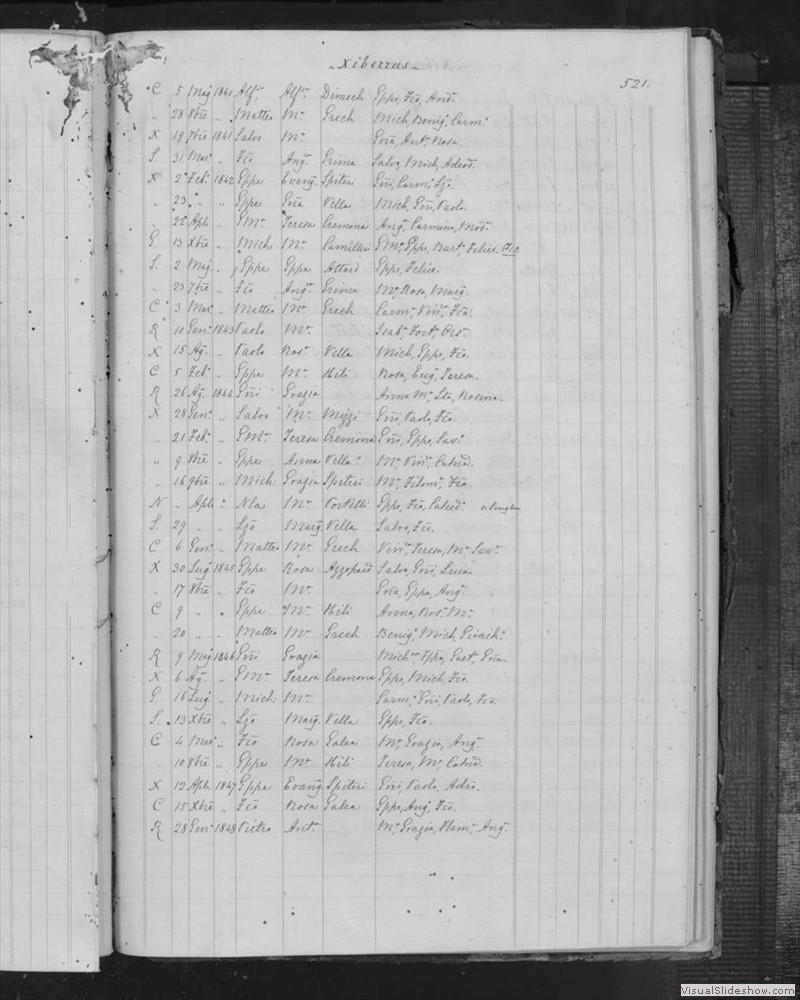 Xiberras
521.
C 5 Mag 1840 Alf. Alf. Dimech Eppe, Fco, And.
" 28 8bre " Matteo M. Grech Mich, Benig, Carm.
X 19 7bre 1841 Salvo M. Gni, Ant, Rosa.
S. 31 Mar. " Fco Ang. Grima Salvo, Mich, Adeod.
X 2 Feb. 1842 Eppe Evang. Spiteri Gni, Carm, Lzo.
" 23 " " Eppe Gna Vella Mich, Gni, Paolo.
" 22 Apl. " GM. Teresa Cremona Ang. Carmina, Mod.
G. 13 Xbre " Mich M. Camilleri GM, Eppe, Bart, Felice, Fco
S. 2 Mag. " Eppe Eppa Attard Eppe, Felice.
" 23 7bre " Fco Ang. Grima M. Rosa, Marg.
C 3 Mar. " Matteo M. Grech Carm, Vin, Fca.
R 10 Gen. 1843 Paolo M. Isab, Fort,
X 15 Ag. " Paolo Ros. Vella Mich, Eppe, Fco.
C 5 Feb. " Eppe M. Hili Rosa, Eug, Teresa.
R 26 Ag. 1844 Gni Grazia Anna M. Rosina.
X 28 Gen. " Salvo M. Mizzi Gni, Paolo, Fco.
" 21 Feb. " GM. Teresa Cremona Gni, Eppe, Sav.
" 9 8bre " Eppe Anna Vella M. Vin, Cat
" 16 9bre " Mich: Grazia Spiteri M. Filom, Fca.
N " Apl. " Nla M. Portelli Eppe, Fco, Calced.
S. 29 " " Lzo Marg. Vella Salvo, Fco.
C 6 Gen. " Matteo M. Grech Vin, Teresa, M. Sav.
X 30 Lug 1845 Eppe Rosa Azzopard Salvo, Gni, Luca
" 17 8bre " Fco M. Gna, Eppa, Ang.
C 9 " " Eppe M. Hili Anna, Ros, M.
" 20 " " Matteo M. Grech Benig, Mich, Gioach.
R 9 Mag 1846 Gni Grazia Mich, Eppa, Gaet, Gna.
X 6 Ag. " GM. Teresa Cremona Eppe, Mich, Fco.
G. 16 Lug. " Mich: M. Carm, Gni, Paolo, Fco.
S. 13 Xbre " Lzo Marg. Vella Eppe, Fco.
C 4 Mar " Fco Rosa Galea M. Grazia, Ang.
" 10 8bre " Eppe M. Hili Teresa, M. Cat
X 12 Apl. 1847 Eppe Evang Spiteri Gni, Paolo,
C 15 Xbre " Fco Rosa Galea Eppe, Ang, Fco.
R 28 Gen. 1848 Pietro Ant. M. Grazia, Ang.
VisualSlideshow.com